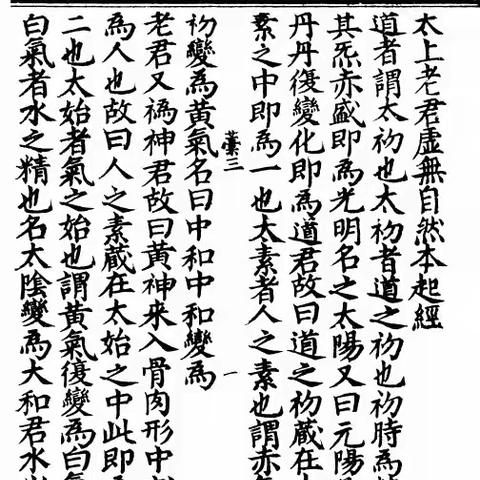 太上老君虛無自然本起經
道者謂太初也太初者道之初也初時為
其炁赤盛即為光明名之太陽又曰元陽
丹丹復變化即為道君故曰道之初藏在
素之中即為一也太素者人之素也謂赤
藁三
一
初變為黃氣名曰中和中和變為
老君又為神君故曰黃神來入骨肉形中
為人也故曰人之素藏在太始之中此即
二也太始者氣之始也謂黃氣復變為白氣
白氣者水之精也名太陰變為大和君水